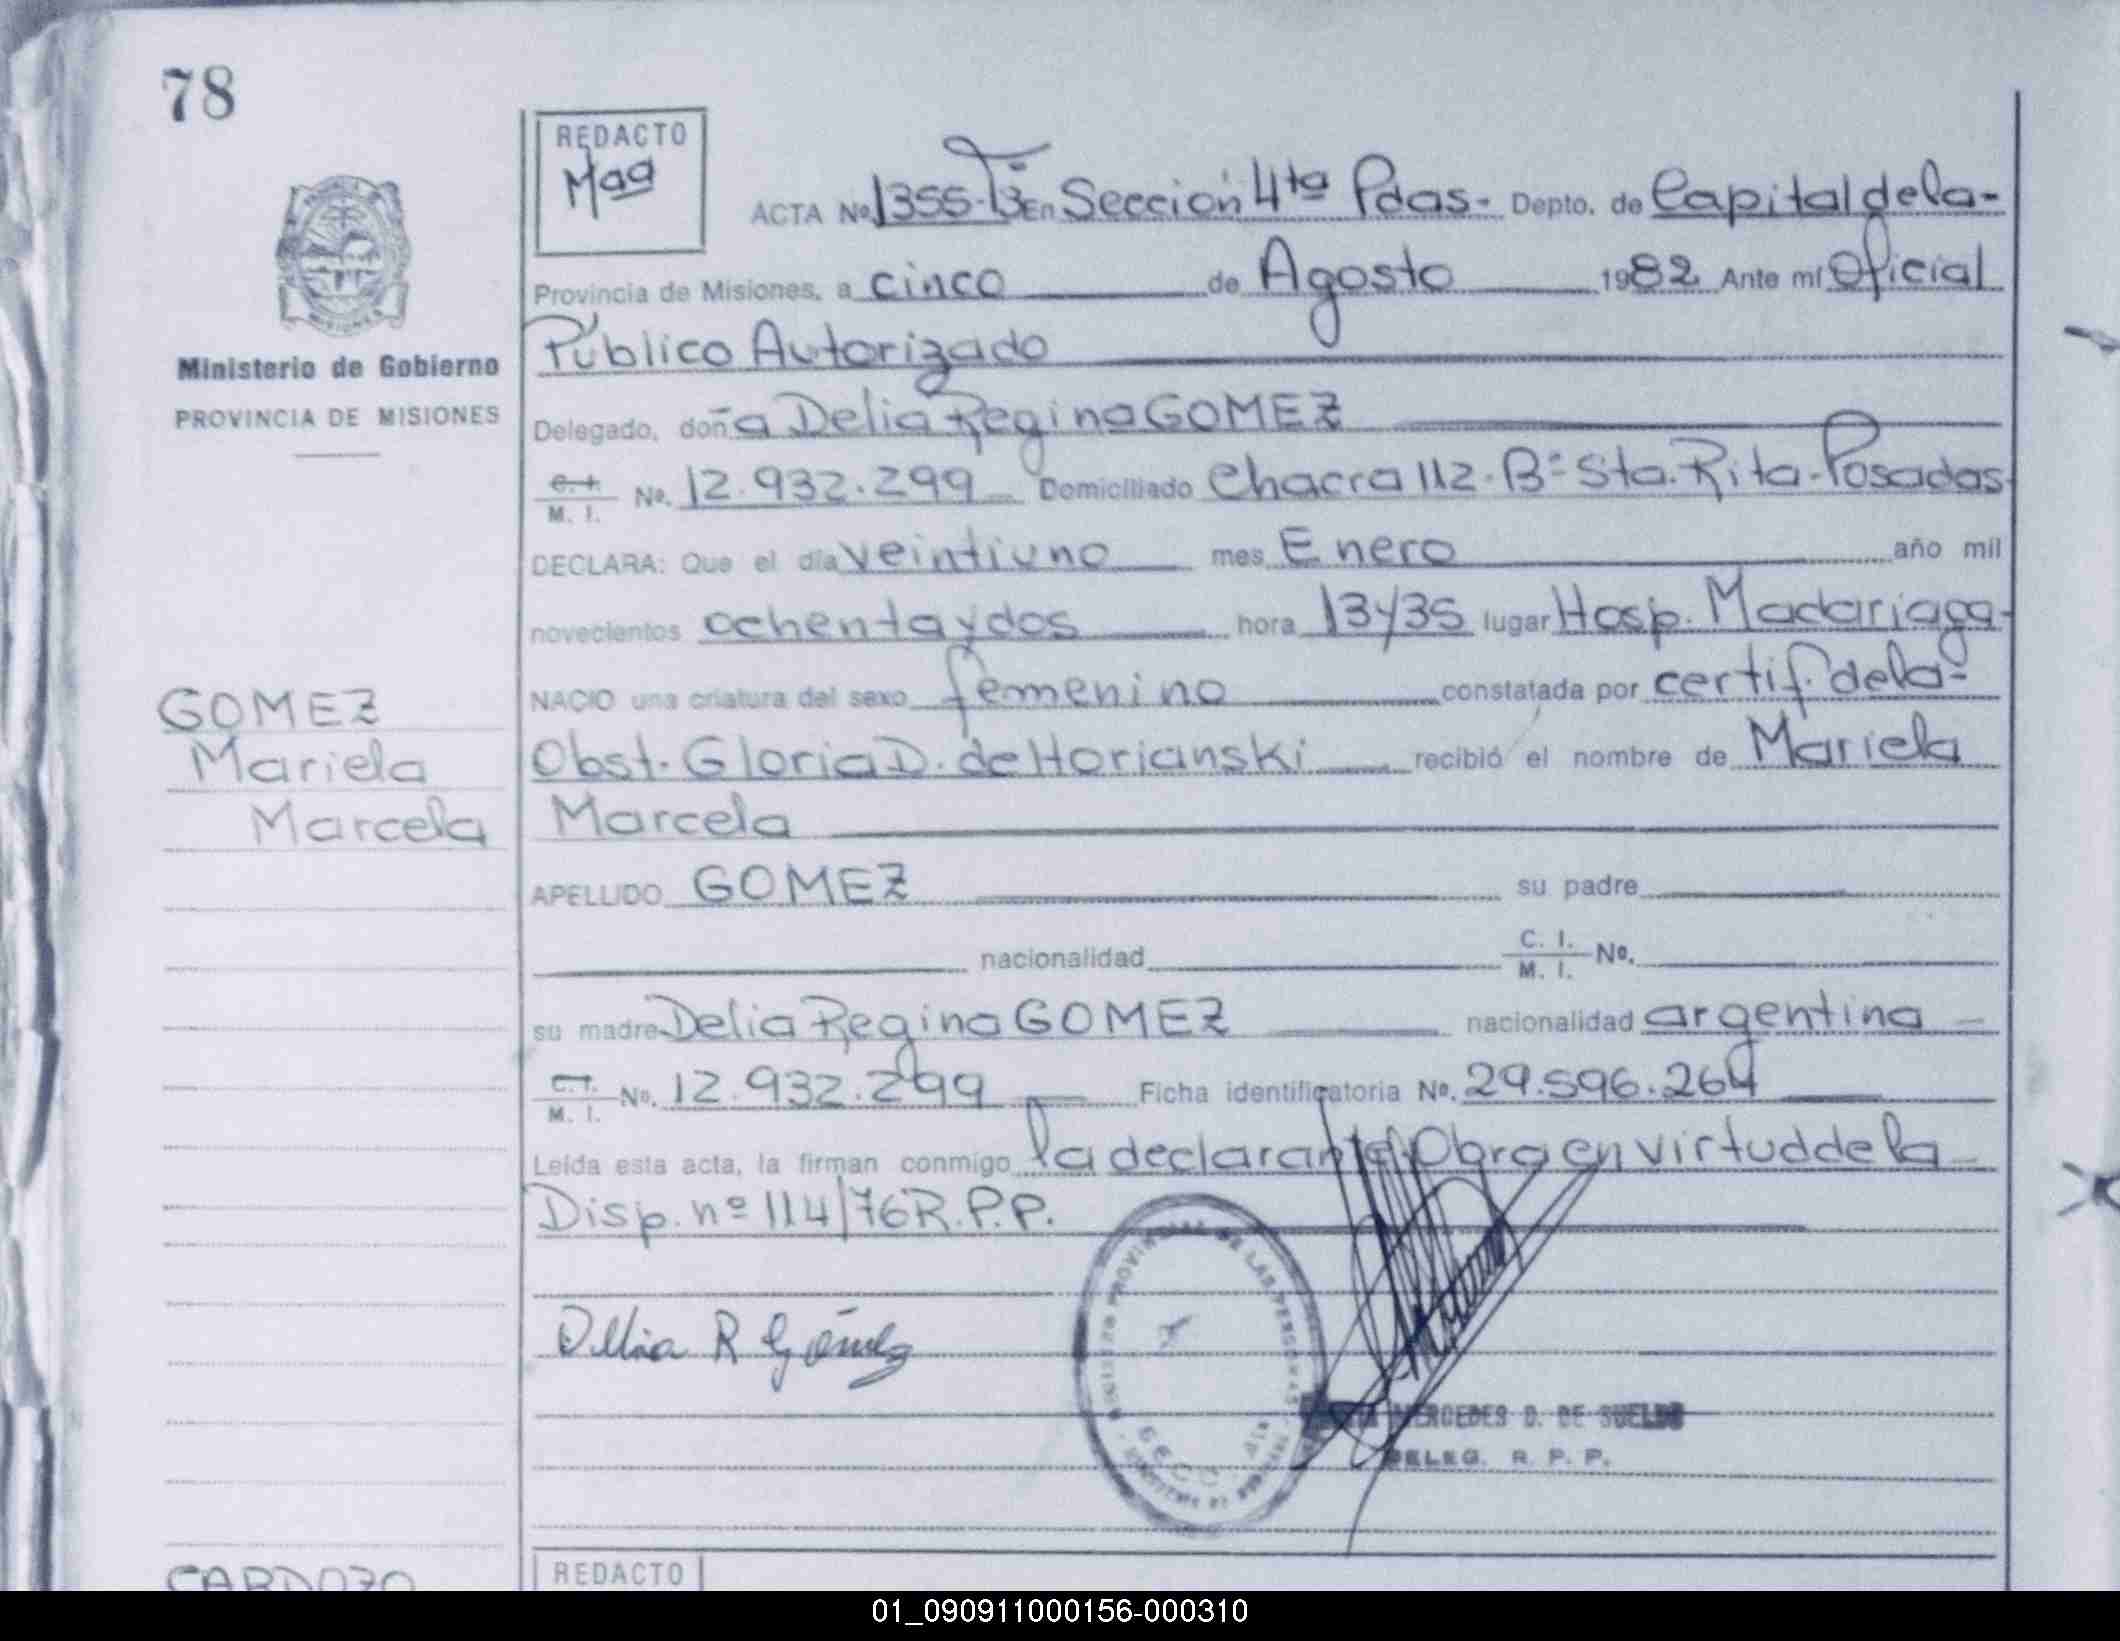 78
REDACTO
Maa
ACTA Nº 1355-T3º En Sección 4ta Pdas- Depto. de Capital de la-
Provincia de Misiones, a cinco de Agosto 1982 Ante mí Oficial
Público Autorizado
Ministerio de Gobierno
PROVINCIA DE MISIONES
Delegado, doña Delia Regina GOMEZ
C. I. / M. I. Nº. 12.932.299 Domiciliado Chacra 112-Bº Sta. Rita-Posadas
DECLARA: Que el día veintiuno mes Enero año mil
novecientos ochenta y dos hora 13y35 lugar Hosp. Madariaga-
NACIO una criatura del sexo femenino constatada por certif. de la-
Obst. Gloria D. de Horianski recibió el nombre de Mariela
Marcela
GOMEZ
Mariela
Marcela
APELLIDO GOMEZ su padre
nacionalidad C. I. / M. I. Nº.
su madre Delia Regina GOMEZ nacionalidad argentina
C. I. / M. I. Nº. 12.932.299 Ficha identificatoria Nº. 29.596.264
Leída esta acta, la firman conmigo la declarante. Obra en virtud de la
Disp. nº 114/76 R.P.P.
Delia R Gómez
PROVINCIAL DE LAS PERSONAS
MERCEDES D. DE SUELDO
DELEG. R. P. P.
CARDOZO
REDACTO
01_090911000156-000310